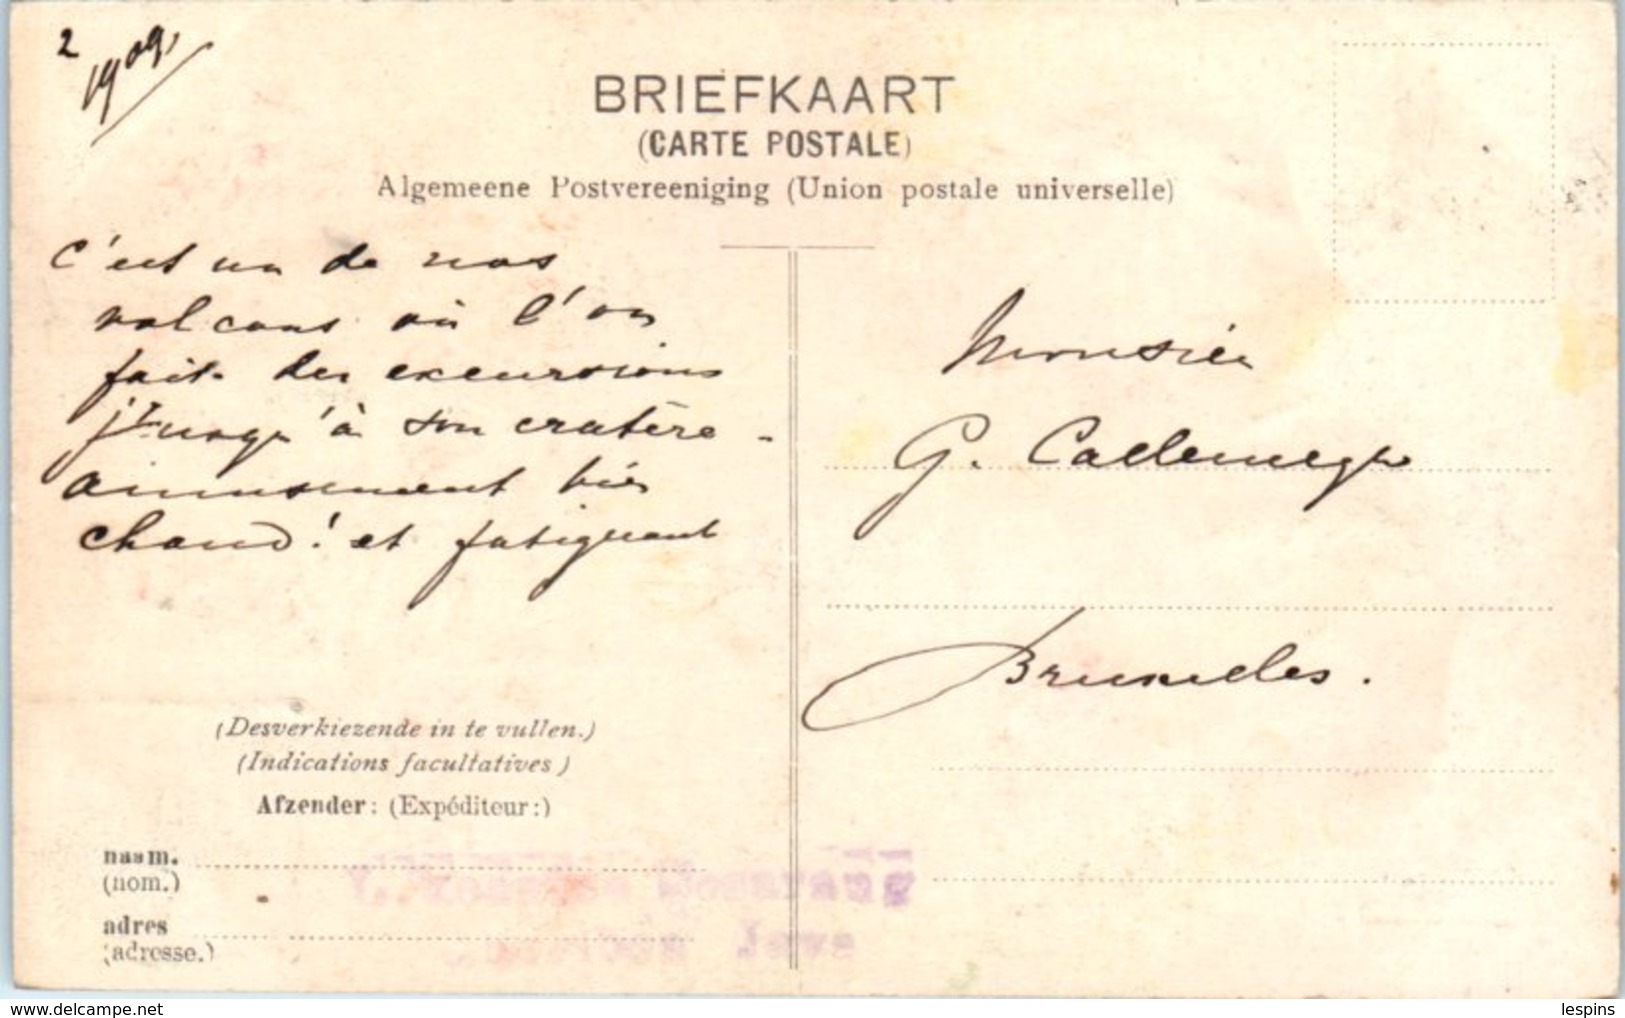 2
1909,
BRIEFKAART
(CARTE POSTALE)
Algemeene Postvereeniging (Union postale universelle)
C'est un de nos
volcans où l'on
fait des excursions
jusqu'à son cratère -
amusement bien
chaud! et fatiguant
Monsieur
G. Callemeyn
Bruxelles.
(Desverkiezende in te vullen.)
(Indications facultatives)
Afzender: (Expéditeur:)
naam.
(nom.)
adres
(adresse.)
Java
delcampe.net
lespins